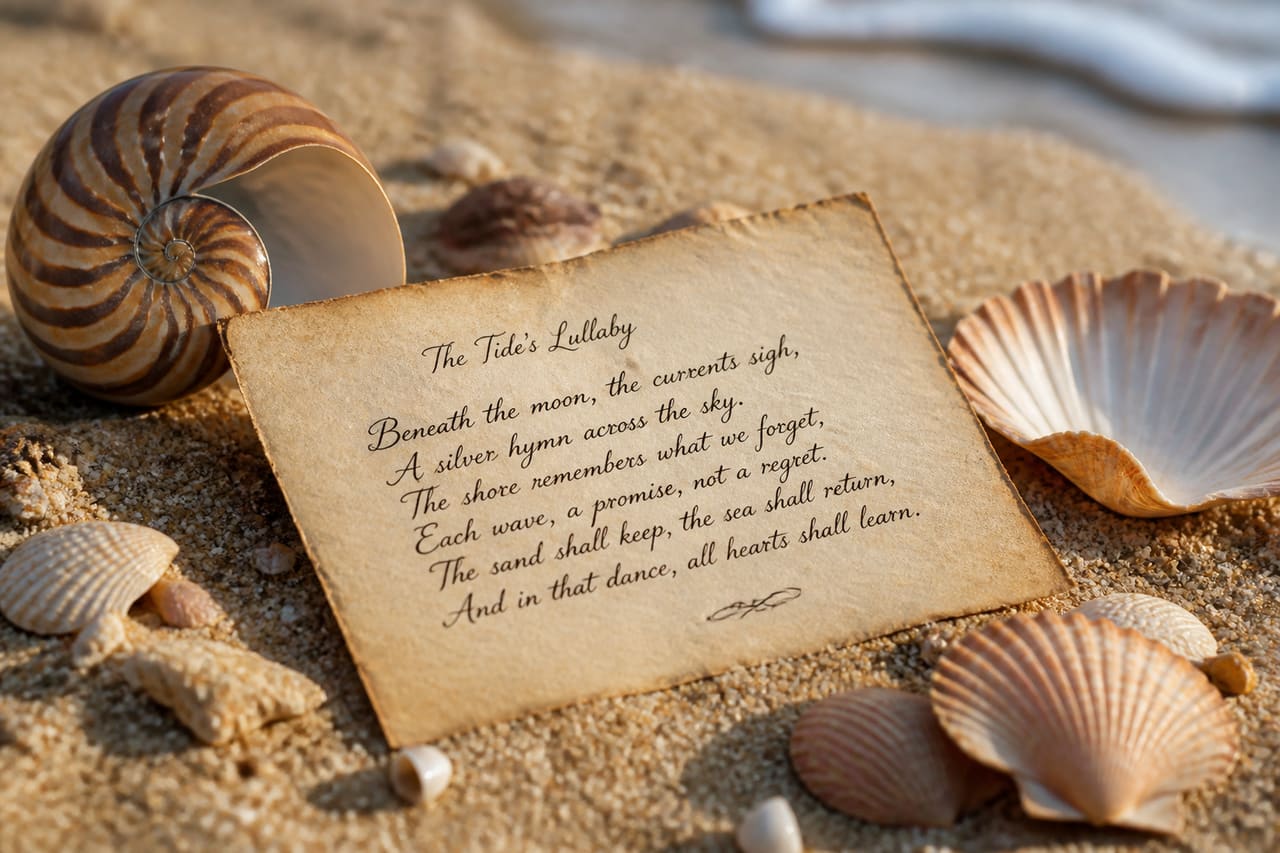 The Tide's Lullaby
Beneath the moon, the currents sigh,
A silver hymn across the sky.
The shore remembers what we forget,
Each wave, a promise, not a regret.
The sand shall keep, the sea shall return,
And in that dance, all hearts shall learn.